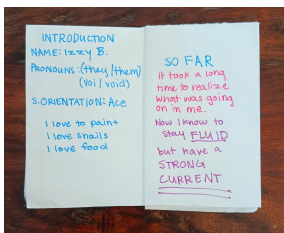 INTRODUCTION
NAME: Izzy B.
PRONOUNS: (they/them)
(voi/void)
S.ORIENTATION: Ace
I love to paint
I love snails
I love food
SO FAR
It took a long
time to realize
what was going
on in me.
Now I know to
stay FLUID
but have a
STRONG
CURRENT